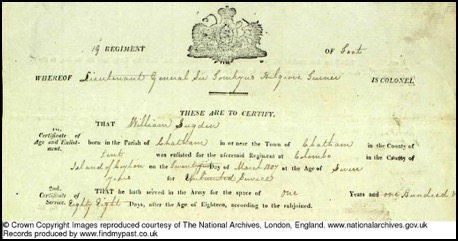 19 REGIMENT OF Foot
WHEREOF Lieutenant General Sir Tomkyns Hilgrove Turner IS COLONEL,
THESE ARE TO CERTIFY,
THAT William Sugden
1st. Certificate of Age and Enlistment.
born in the Parish of Chatham in or near the Town of Chatham in the County of
Kent was enlisted for the aforesaid Regiment at Colombo in the County of
Island of Ceylon on the Day of March 1807 at the Age of Seven
Years for Unlimited Service
2nd. Certificate of Service.
THAT he hath served in the Army for the space of one Years and one Hundred
Eighty Eight Days, after the Age of Eighteen, according to the subjoined.
© Crown Copyright Images reproduced courtesy of The National Archives, London, England. www.nationalarchives.gov.uk
Records produced by www.findmypast.co.uk